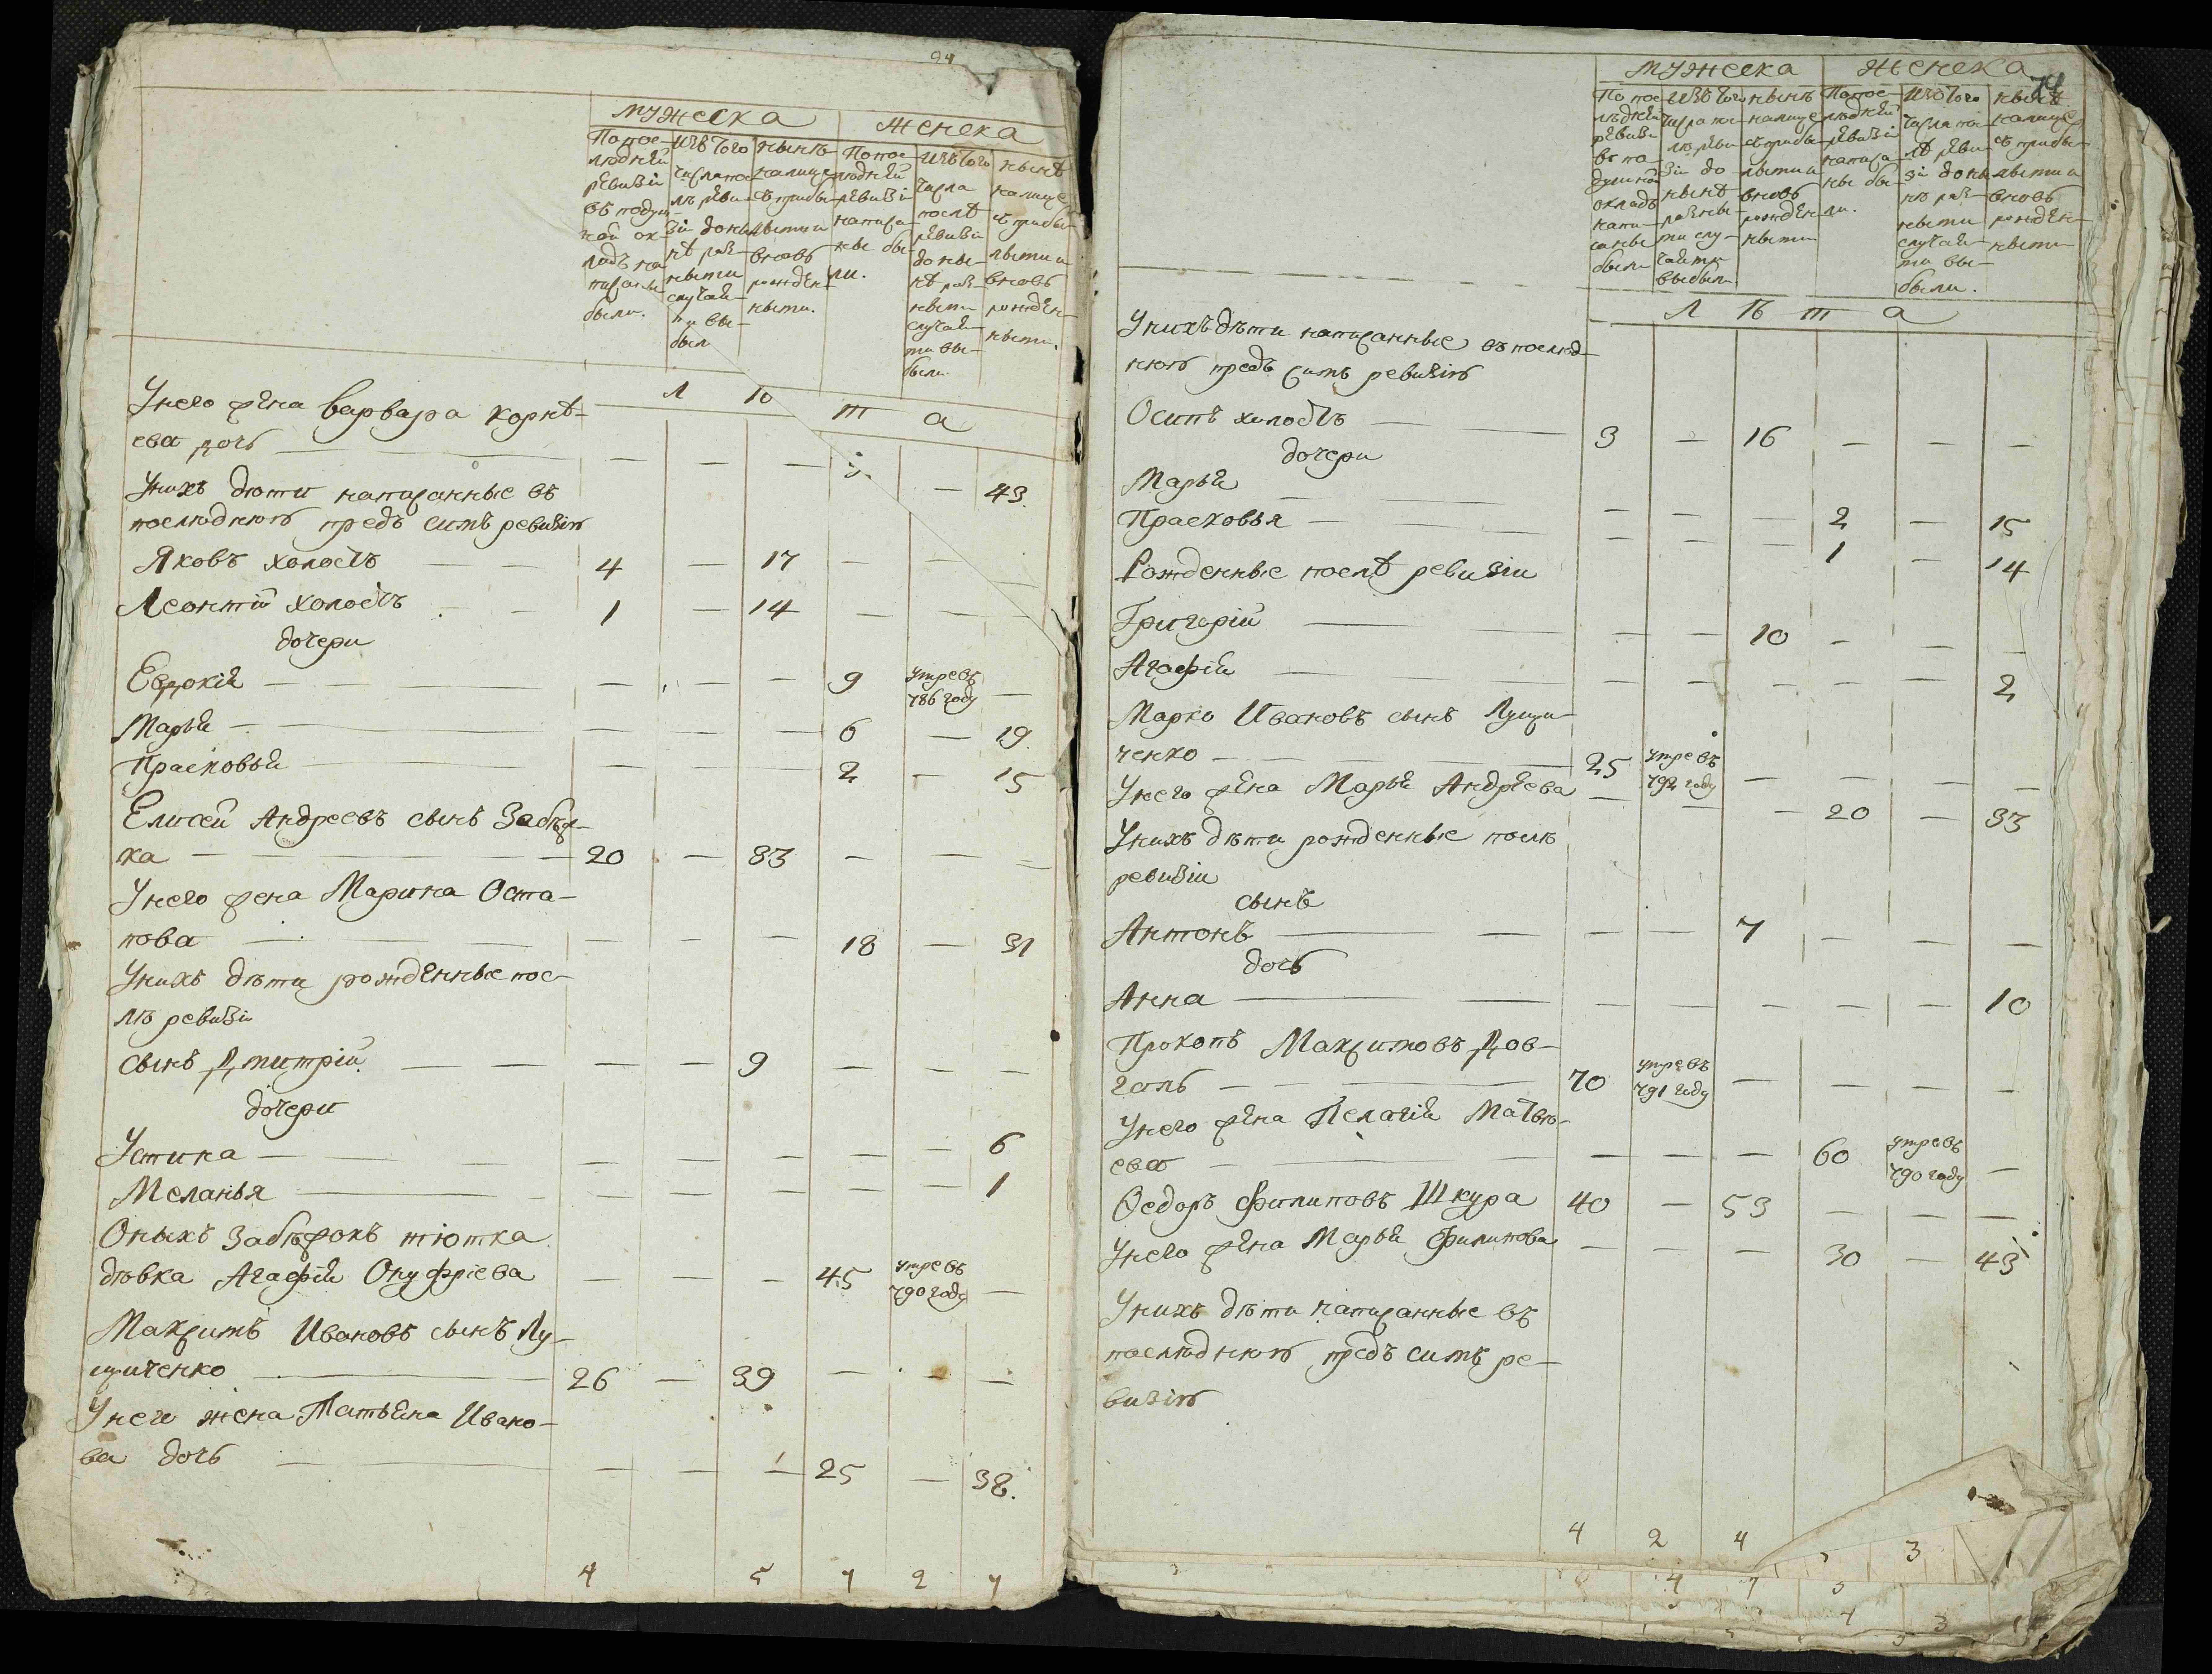 94
мужеска
женска
По пос-
лѣдней
ревизіи
въ подуш-
ной ок-
ладъ на
писаны
были.
Изъ того
числа по
лѣ реви-
зіи до ны
нѣ раз-
ными
случая-
ми вы-
был
нынѣ
налице
съ прибы-
лыми и
вновь
рожден-
ными.
По пос-
лѣдней
ревизіи
написа-
ны бы-
ли.
Изъ того
числа
послѣ
ревизіи
до ны-
нѣ раз-
ными
случая-
ми вы-
были.
нынѣ
налице
съ прибы-
лыми и
вновь
рожден-
ными.
Л ѣ т а
У него жена Варвара Корнѣ-
ева дочь — — — — — 43.
У нихъ дѣти написанные въ
послѣднюю предъ симъ ревизію
Яковъ холостъ 4 — 17 — — —
Леонтій холостъ 1 — 14 — — —
дочери
Евдокія — — — 9 умре въ 786 году —
Марья — — — 6 — 19.
Прасковья — — — 2 — 15
Елисей Андреевъ сынъ Забѣж-
ка 20 — 33 — — —
У него жена Марина Оста-
пова — — — 18 — 31
У нихъ дѣти рожденные пос-
лѣ ревизіи
сынъ Дмитрій — — 9 — — —
дочери
Устина — — — — — 6
Меланья — — — — — 1
Оныхъ Забѣжокъ тіотка
дѣвка Агафія Онуфріева — — — 45 умре въ 790 году —
Максимъ Ивановъ сынъ Лу-
щиченко 26 — 39 — — —
У него жена Татьяна Ивано-
ва дочь — — — 25 — 38.
4 5 7 2 7
74
мужеска
женска
По пос-
лѣдней
ревизіи
въ по-
душной
окладъ
напи-
саны
были
Изъ того
числа пос-
лѣ реви-
зіи до
нынѣ
разны-
ми слу-
чаями
выбыли
нынѣ
налице
съ прибы-
лыми и
вновь
рожден-
ными
По пос-
лѣдней
ревизіи
написа-
ны бы-
ли.
Изъ того
числа по-
лѣ реви-
зіи до ны
нѣ раз-
ными
случая-
ми вы-
были.
нынѣ
налице
съ прибы-
лыми и
вновь
рожден-
ными
Л ѣ т а
У нихъ дѣти написанные въ послѣд-
нюю предъ симъ ревизію
Осипъ холостъ 3 — 16 — — —
дочери
Марья — — — 2 — 15
Прасковья — — — 1 — 14
Рожденные послѣ ревизіи
Григорій — — 10 — — —
Агафія — — — — — 2
Марко Ивановъ сынъ Лущи-
ченко 25 умре въ 792 году — — — —
У него жена Марья Андреева — — — 20 — 33
У нихъ дѣти рожденные послѣ
ревизіи
сынъ
Антонъ — — 7 — — —
дочь
Анна — — — — — 10
Прокопъ Максимовъ Дов-
галь 70 умре въ 791 году — — — —
У него жена Пелагія Матвѣ-
ева — — — 60 умре въ 790 году —
Ѳедоръ Филиповъ Шкура 40 — 53 — — —
У него жена Марья Филипова — — — 30 — 43
У нихъ дѣти написанные въ
послѣднюю предъ симъ ре-
визію
4 2 4
3